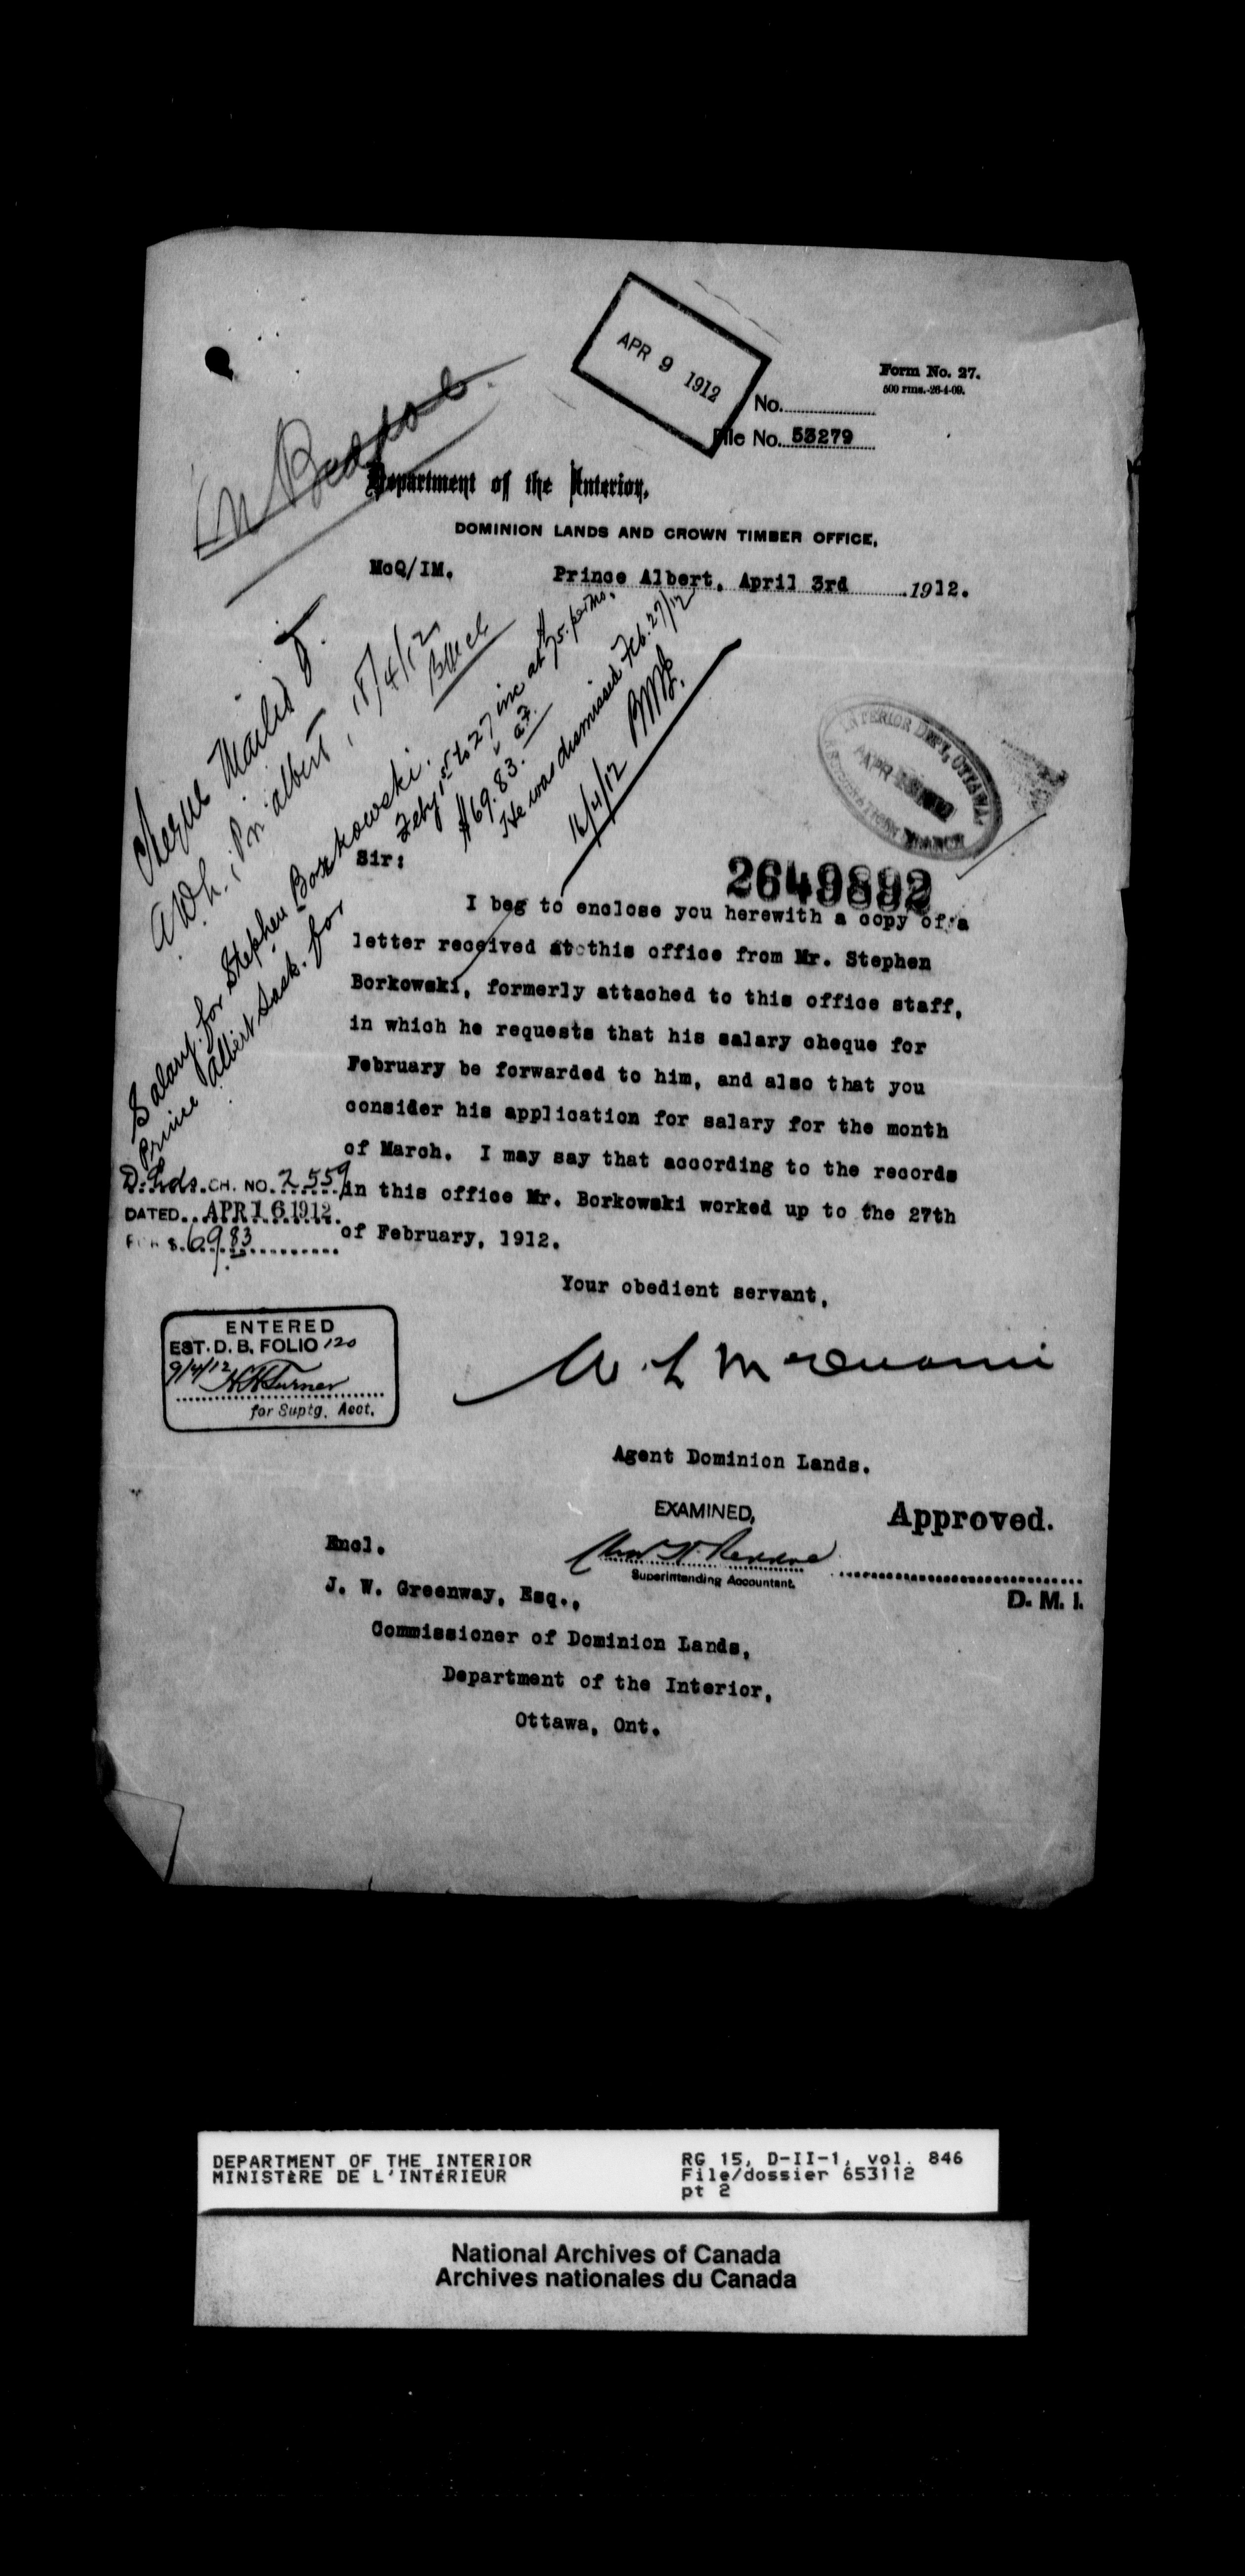 APR 9 1912
Form No. 27.
500 rms.-26-4-09.
No.
File No. 53279
Department of the Interior,
DOMINION LANDS AND CROWN TIMBER OFFICE,
McQ/IM.
Prince Albert, April 3rd 1912.
Cheque Mailed
Pr albert, 18/4/12
Salary for Stephen Borkowski.
Prince Albert Sask. for
Feby 1st to 27 inc at $75. per mo.
$69.83.
He was dismissed Feb. 27/12
16/4/12
INTERIOR DEPT, OTTAWA.
APR 1912
REGISTRATION BRANCH
2649892
Sir:
I beg to enclose you herewith a copy of a
letter received at this office from Mr. Stephen
Borkowski, formerly attached to this office staff,
in which he requests that his salary cheque for
February be forwarded to him, and also that you
consider his application for salary for the month
of March. I may say that according to the records
in this office Mr. Borkowski worked up to the 27th
of February, 1912.
D. Lds. CH. NO. 2559
DATED APR 16 1912
FOR $. 69.83
Your obedient servant,
ENTERED
EST. D. B. FOLIO 120
9/4/12 Turner
for Suptg. Acct.
Agent Dominion Lands.
EXAMINED,
Approved.
Superintending Accountant.
D. M. I.
Encl.
J. W. Greenway, Esq.,
Commissioner of Dominion Lands,
Department of the Interior,
Ottawa, Ont.
DEPARTMENT OF THE INTERIOR
MINISTÈRE DE L'INTÉRIEUR
RG 15, D-II-1, vol. 846
File/dossier 653112
pt 2
National Archives of Canada
Archives nationales du Canada